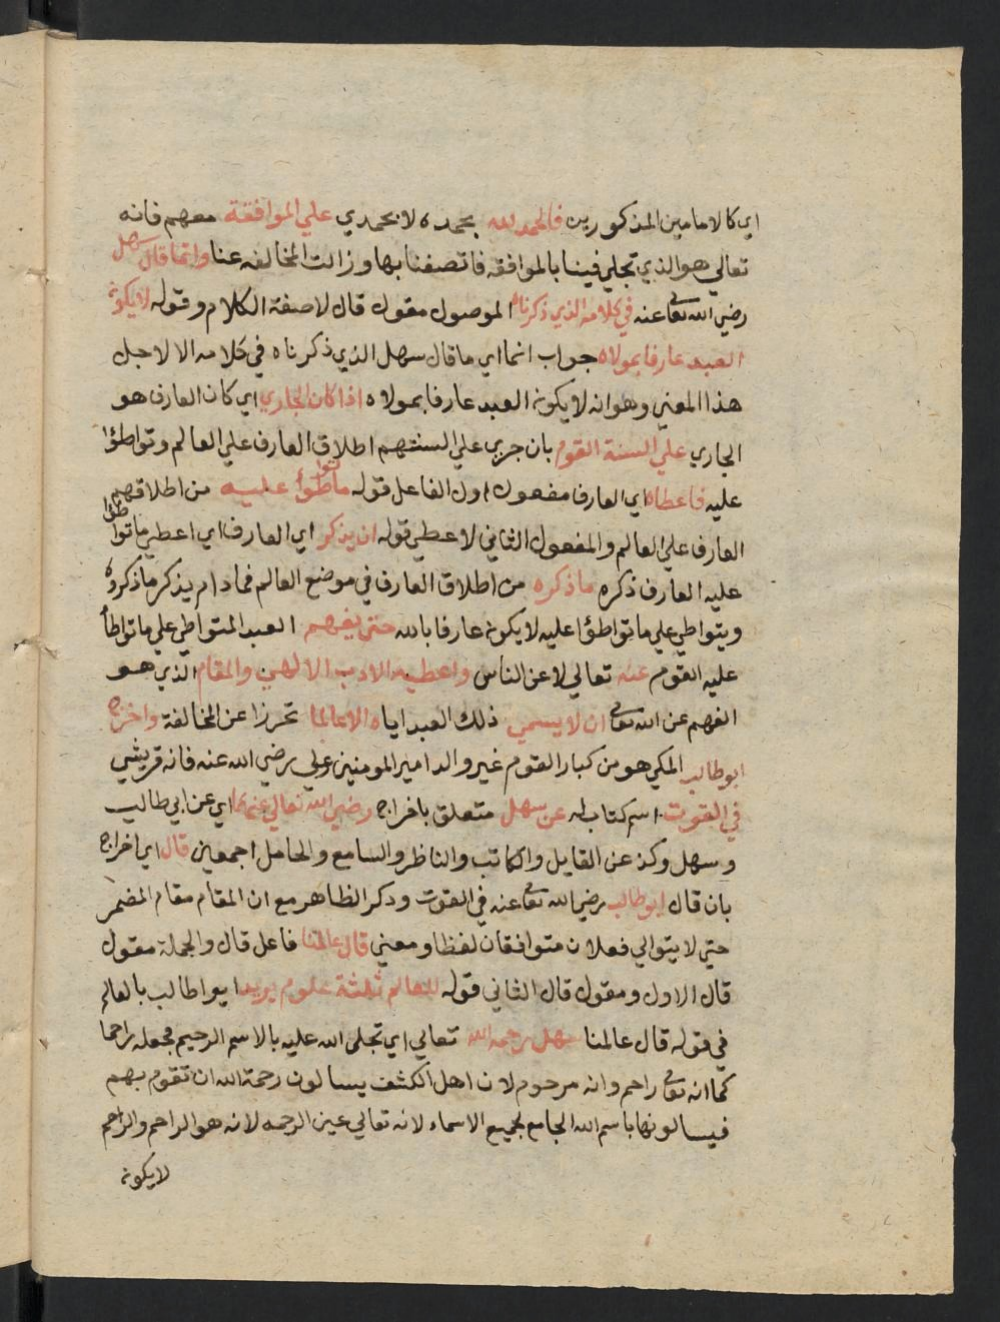 اي كالامامين المذكورين فالحمد لله بحمده لا بحمدي علي الموافقة معهم فانه
تعالي هو الذي تجلي فينا بالموافقه فاتصفنا بها وزالت المخالفه عنا وانما قال سهل
رضي الله تعا عنه في كلامه الذي ذكرناه الموصول مقول قال لا صفة الكلام وقوله لا يكون
العبد عارفا بمولاه جواب انما اي ما قال سهل الذي ذكرناه في كلامه الا لاجل
هذا المعني وهو انه لا يكون العبد عارفا بمولاه اذا كان الجاري اي كان العارف هو
الجاري علي السنة القوم بان جري علي السنتهم اطلاق العارف علي العالم وتواطؤا
عليه فاعطاه اي العارف مفعول اول الفاعل قوله ما تواطؤا عليه من اطلاقهم
العارف علي العالم والمفعول الثاني لاعطي قوله ان يذكر اي العارف اي اعطي ما تواطؤا
عليه العارف ذكره ما ذكره من اطلاق العارف في موضع العالم فما دام يذكر ما ذكروه
ويتواطي علي ما تواطؤا عليه لا يكون عارفا بالله حتي يفهم العبد المتواطي علي ما تواطأ
عليه القوم عنه تعالي لا عن الناس واعطيه الادب الالهي والمقام الذي هو
الفهم عن الله تعا ان لا يسمي ذلك العبد اياه الا عالما تحرزا عن المخالفة واخرج
ابو طالب المكي هو من كبار القوم غير والد امير المومنين علي رضي الله عنه فانه قريشي
في القوت اسم كتاب له عن سهل متعلق باخراج رضي الله تعالي عنهما اي عن ابي طالب
وسهل وكذ عن القايل والكاتب والناظر والسامع والحامل اجمعين قال اي اخراج
بان قال ابو طالب رضي الله تعا عنه في القوت وذكر الظاهر مع ان المقام مقام المضمر
حتي لا يتوالي فعلان متوافقان لفظا ومعني قال عالمنا فاعل قال والجملة مقول
قال الاول ومقول قال الثاني قوله للعالم ثلثة علوم يريد ابو اطالب بالعالم
في قوله قال عالمنا سهل رحمه الله تعالي اي تجلي الله عليه بالاسم الرحيم فجعله راحما
كما انه تعا راحم وانه مرحوم لان اهل الكشف يسالون رحمة الله ان تقوم بهم
فيسالونها باسم الله الجامع لجميع الاسماء لانه تعالي عين الرحمه لانه هو الراحم والراحم
لا يكون